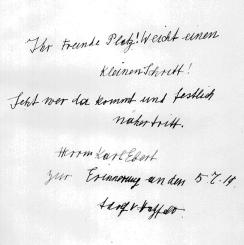 Ihr Freunde Platz! Weicht einen
kleinen Schritt!
Seht wer da kommt und festlich
näher tritt.
Herrn Karl Ebert
zur Erinnerung an den 5.7.19